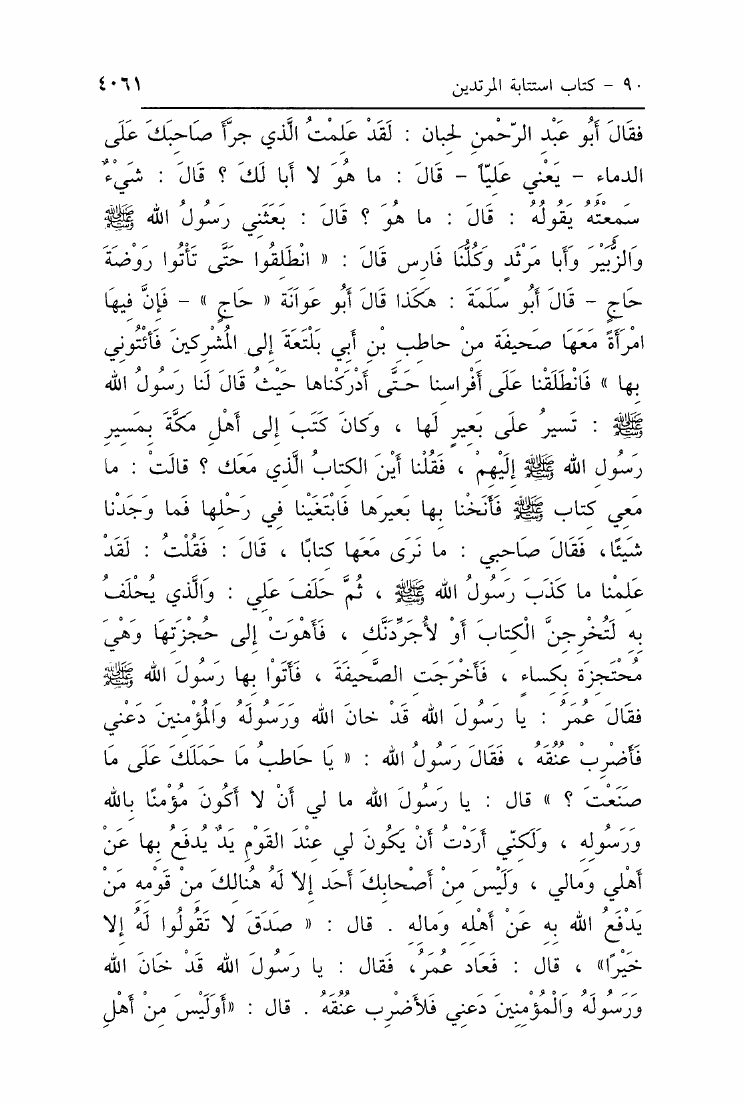 ٩٠ - كتاب استتابة المرتدين ٤٠٦١
فقَالَ أَبُو عَبْدِ الرّحْمنِ لحبان : لَقَدْ عَلِمْتُ الَّذي جرَّأَ صَاحِبَكَ عَلَى
الدماء - يَعْني عَلِيّاً - قَالَ : ما هُوَ لا أَبا لَكَ ؟ قَالَ : شَيْءٌ
سَمِعتُهُ يَقُولُهُ : قَالَ : ما هُوَ ؟ قَالَ : بَعَثَني رَسُولُ الله ﷺ
وَالزُّبَيْرَ وَأَبا مَرْثَدٍ وَكُلُّنَا فَارِس قَالَ : « انْطَلِقُوا حَتَّى تَأْتُوا رَوْضَةَ
حَاجٍ - قَالَ أَبُو سَلَمَةَ : هكَذا قَالَ أَبُو عَوَانَةَ « حَاجٍ » - فَإِنَّ فِيهَا
امْرَأَةً مَعَهَا صَحيفَة مِنْ حاطِبِ بْنِ أَبي بَلْتَعَةَ إلى المُشْرِكينَ فَأتُوني
بِها » فَانْطَلَقْنا عَلَى أَفْراسِنا حَتَّى أَدْرَكْناها حَيْثُ قَالَ لَنا رَسُولُ الله
ﷺ : تَسيرُ علَى بَعيرٍ لَها ، وَكانَ كَتَبَ إلى أَهْلِ مَكَّةَ بِمَسيرِ
رَسُولِ الله ﷺ إِلَيْهِمْ ، فَقُلْنا أَيْنَ الكتابُ الَّذي مَعَكِ ؟ قالَتْ : ما
مَعي كِتاب ﷺ فَأَنَخْنا بِها بَعيرَها فَابْتَغَيْنا في رَحْلِها فَما وَجَدْنا
شَيئًا، فَقالَ صَاحِبي : ما نَرَى مَعَها كتابًا ، قَالَ : فَقُلْتُ : لَقَدْ
عَلِمْنا ما كَذَبَ رَسُولُ الله ﷺ ، ثُمَّ حَلَفَ عَلي : وَالَّذي يُحْلَفُ
بِهِ لَتُخْرِجِنَّ الْكِتابَ أَوْ لأُجَرِّدَنَّكِ ، فَأَهْوَتْ إلى حُجْزَتِهَا وَهْيَ
مُحْتَجِزَة بِكِساءٍ ، فَأَخْرَجَتِ الصَّحيفَةَ ، فَأَتَوْا بِها رَسُولَ الله ﷺ
فقَالَ عُمَرُ : يا رَسُولَ الله قَدْ خانَ الله وَرَسُولَهُ وَالمُؤْمِنينَ دَعْني
فَأَضْرِبْ عُنُقَهُ ، فَقَالَ رَسُولُ الله : « يَا حَاطِبُ مَا حَمَلَكَ عَلَى مَا
صَنَعْتَ ؟ » قال : يا رَسُولَ الله ما لي أَنْ لا أَكُونَ مُؤْمنًا بِالله
وَرَسُولِهِ ، وَلَكنّي أَرَدْتُ أَنْ يَكُونَ لي عِنْدَ القَوْمِ يَدٌ يُدفَعُ بِها عَنْ
أَهْلي وَمالي ، وَلَيْسَ مِنْ أَصْحابِكَ أَحَد إلاّ لَهُ هُنالِكَ مِنْ قَوْمِهِ مَنْ
يَدْفَعُ الله بِهِ عَنْ أَهْلِهِ وَمالِهِ . قال : « صَدَقَ لا تَقُولُوا لَهُ إِلا
خَيْرًا» ، قال : فَعَاد عُمَرُ، فَقال : يا رَسُولَ الله قَدْ خَانَ الله
وَرَسُولَهُ وَالْمُؤْمِنِينَ دَعني فَلأَضْرِب عُنُقَهُ . قال : «أَوَلَيْسَ مِنْ أَهْلِ